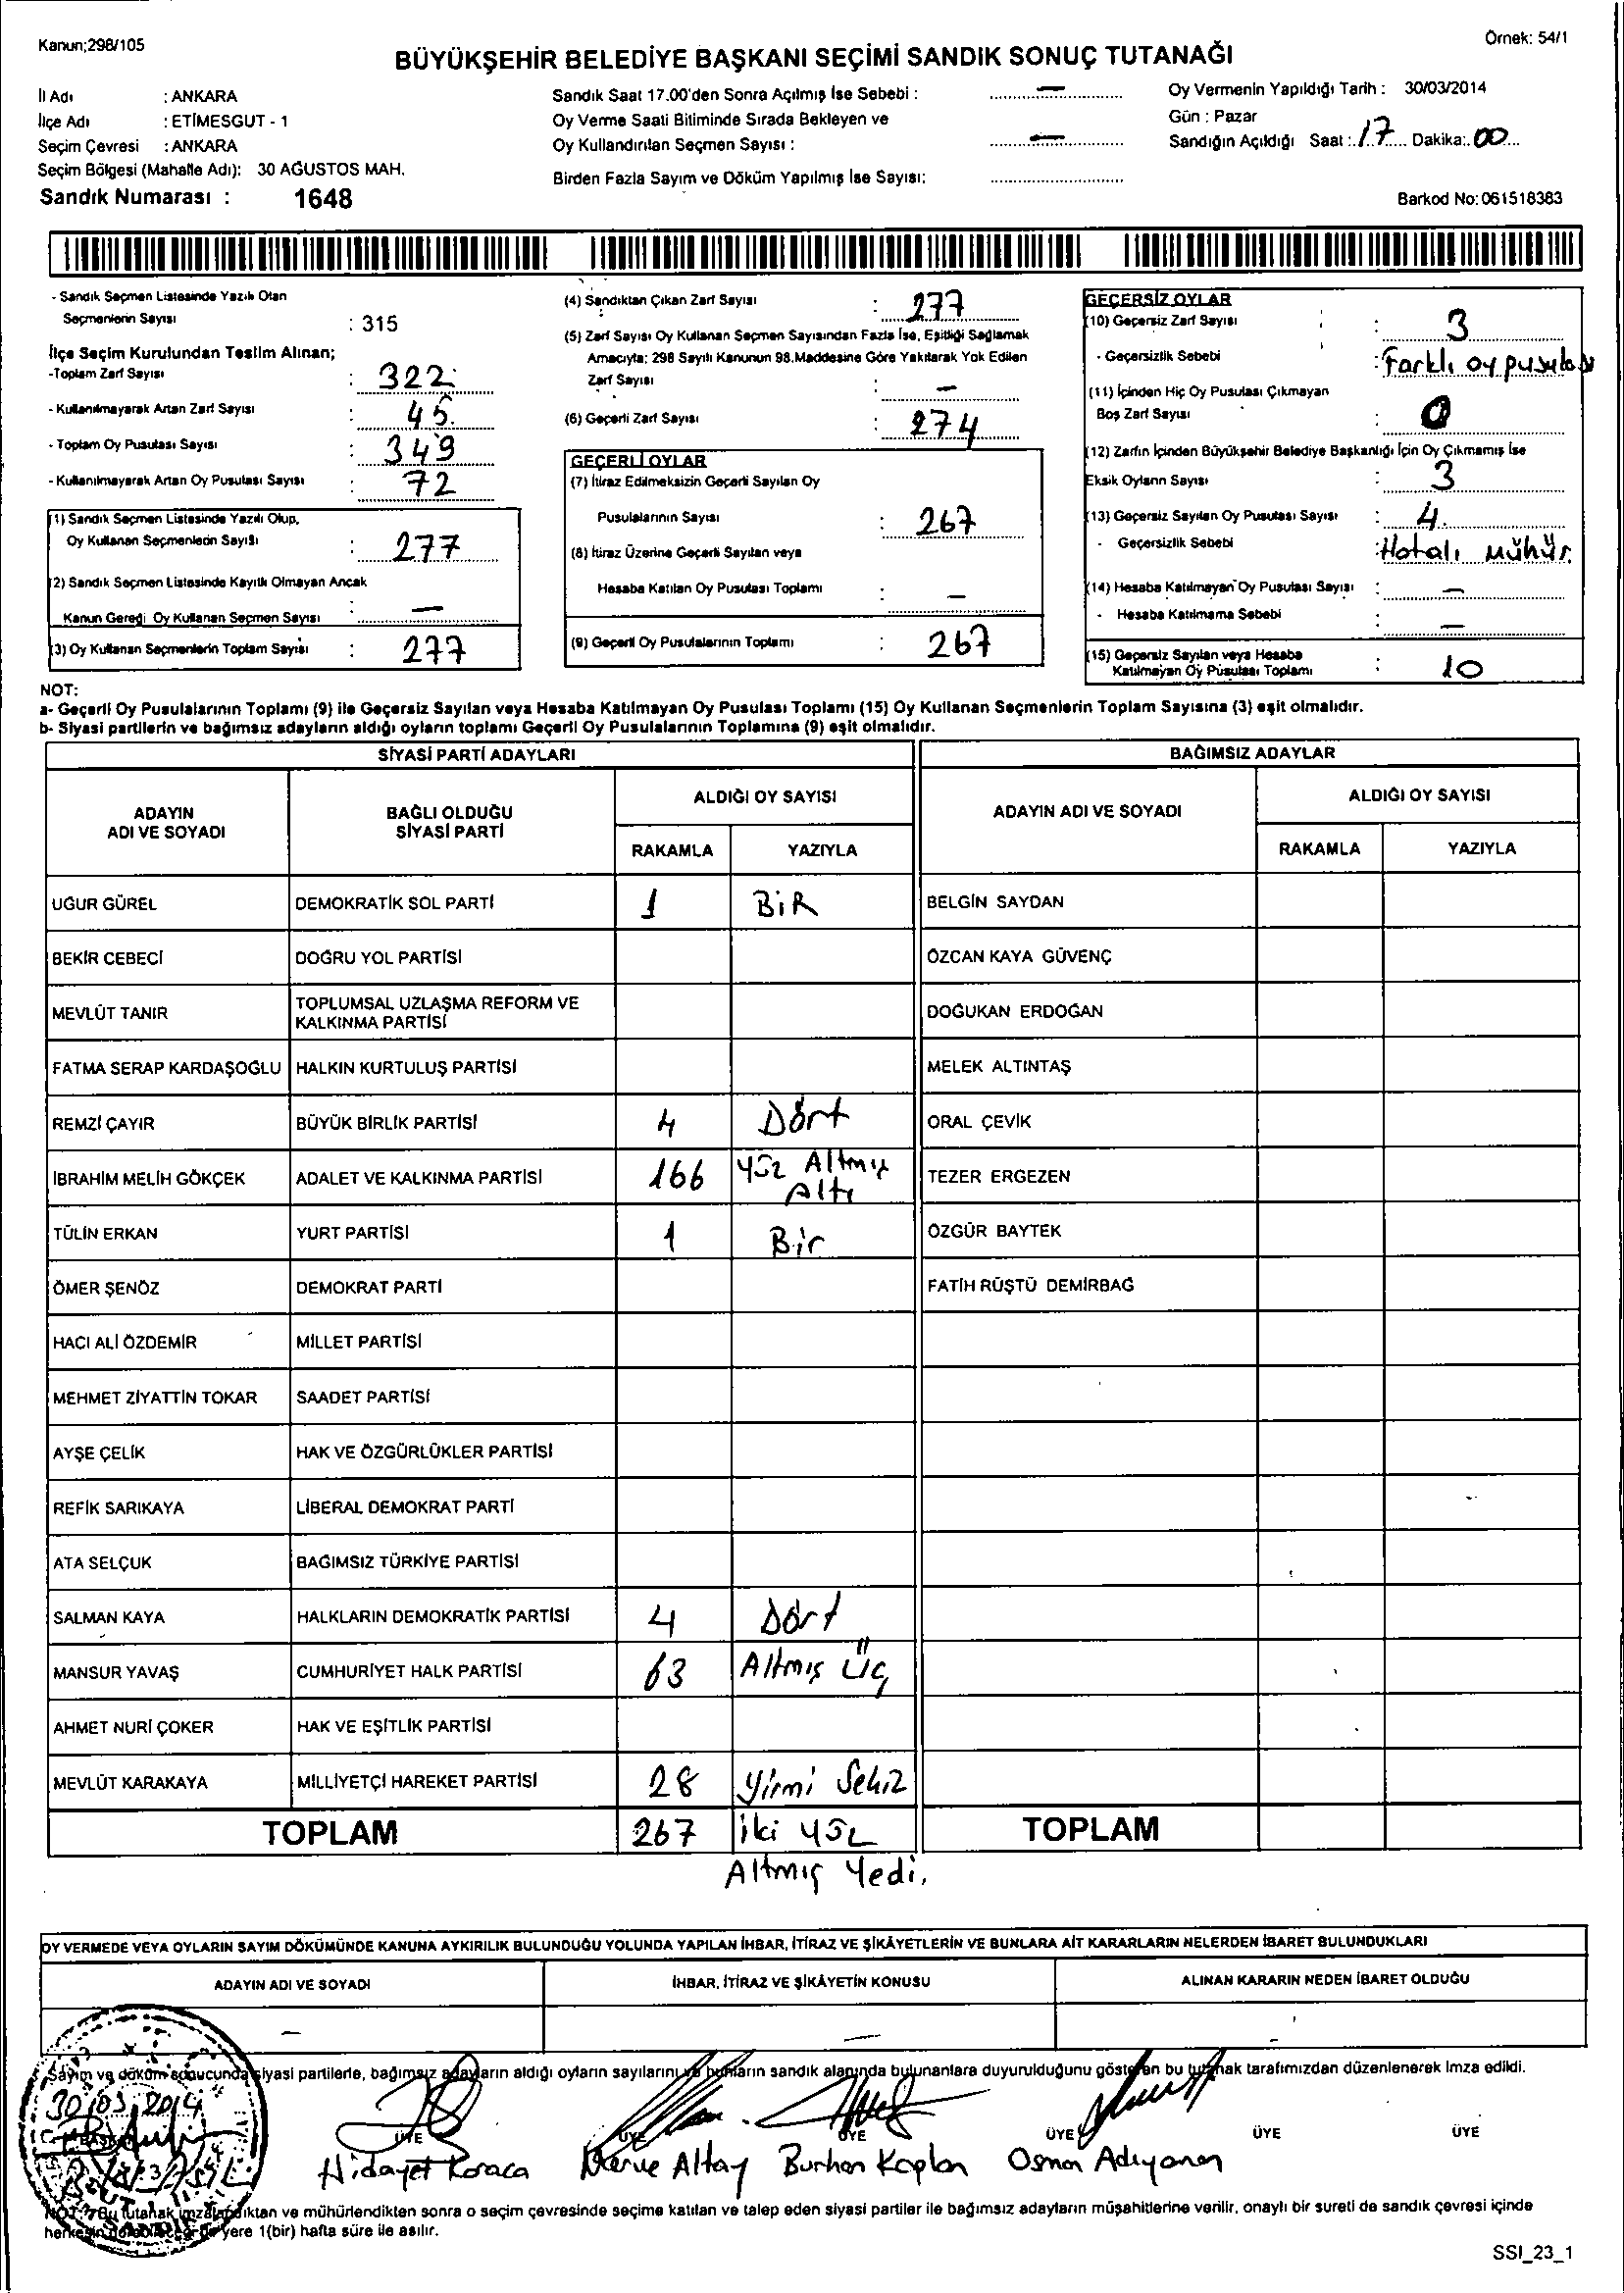 Kanun;298/105
Örnek: 54/1
BÜYÜKŞEHİR BELEDİYE BAŞKANI SEÇİMİ SANDIK SONUÇ TUTANAĞI
İl Adı : ANKARA
İlçe Adı : ETİMESGUT - 1
Seçim Çevresi : ANKARA
Seçim Bölgesi (Mahalle Adı): 30 AĞUSTOS MAH.
Sandık Numarası : 1648
Sandık Saat 17.00'den Sonra Açılmış İse Sebebi : —
Oy Verme Saati Bitiminde Sırada Bekleyen ve
Oy Kullandırılan Seçmen Sayısı : —
Birden Fazla Sayım ve Döküm Yapılmış İse Sayısı:
Oy Vermenin Yapıldığı Tarih : 30/03/2014
Gün : Pazar
Sandığın Açıldığı Saat : 17 Dakika: 00
Barkod No: 061518383
- Sandık Seçmen Listesinde Yazılı Olan
Seçmenlerin Sayısı : 315
İlçe Seçim Kurulundan Teslim Alınan;
-Toplam Zarf Sayısı : 322
- Kullanılmayarak Artan Zarf Sayısı : 45
- Toplam Oy Pusulası Sayısı : 349
- Kullanılmayarak Artan Oy Pusulası Sayısı : 72
(1) Sandık Seçmen Listesinde Yazılı Olup,
Oy Kullanan Seçmenlerin Sayısı : 277
(2) Sandık Seçmen Listesinde Kayıtlı Olmayan Ancak
Kanun Gereği Oy Kullanan Seçmen Sayısı : —
(3) Oy Kullanan Seçmenlerin Toplam Sayısı : 277
(4) Sandıktan Çıkan Zarf Sayısı : 277
(5) Zarf Sayısı Oy Kullanan Seçmen Sayısından Fazla İse, Eşitliği Sağlamak
Amacıyla; 298 Sayılı Kanunun 98.Maddesine Göre Yakılarak Yok Edilen
Zarf Sayısı : —
(6) Geçerli Zarf Sayısı : 274
GEÇERLİ OYLAR
(7) İtiraz Edilmeksizin Geçerli Sayılan Oy
Pusulalarının Sayısı : 267
(8) İtiraz Üzerine Geçerli Sayılan veya
Hesaba Katılan Oy Pusulası Toplamı : —
(9) Geçerli Oy Pusulalarının Toplamı : 267
GEÇERSİZ OYLAR
(10) Geçersiz Zarf Sayısı : 3
- Geçersizlik Sebebi : Farklı oy pusulası
(11) İçinden Hiç Oy Pusulası Çıkmayan
Boş Zarf Sayısı : 0
(12) Zarfın İçinden Büyükşehir Belediye Başkanlığı İçin Oy Çıkmamış İse
Eksik Oyların Sayısı : 3
(13) Geçersiz Sayılan Oy Pusulası Sayısı : 4
- Geçersizlik Sebebi : Hatalı mühür.
(14) Hesaba Katılmayan Oy Pusulası Sayısı : —
- Hesaba Katılmama Sebebi : —
(15) Geçersiz Sayılan veya Hesaba
Katılmayan Oy Pusulası Toplamı : 10
NOT:
a- Geçerli Oy Pusulalarının Toplamı (9) ile Geçersiz Sayılan veya Hesaba Katılmayan Oy Pusulası Toplamı (15) Oy Kullanan Seçmenlerin Toplam Sayısına (3) eşit olmalıdır.
b- Siyasi partilerin ve bağımsız adayların aldığı oyların toplamı Geçerli Oy Pusulalarının Toplamına (9) eşit olmalıdır.
SİYASİ PARTİ ADAYLARI BAĞIMSIZ ADAYLAR
ADAYIN ADI VE SOYADI BAĞLI OLDUĞU SİYASİ PARTİ ALDIĞI OY SAYISI ADAYIN ADI VE SOYADI ALDIĞI OY SAYISI
RAKAMLA YAZIYLA RAKAMLA YAZIYLA
UĞUR GÜREL DEMOKRATİK SOL PARTİ 1 BİR BELGİN SAYDAN
BEKİR CEBECİ DOĞRU YOL PARTİSİ ÖZCAN KAYA GÜVENÇ
MEVLÜT TANIR TOPLUMSAL UZLAŞMA REFORM VE KALKINMA PARTİSİ DOĞUKAN ERDOĞAN
FATMA SERAP KARDAŞOĞLU HALKIN KURTULUŞ PARTİSİ MELEK ALTINTAŞ
REMZİ ÇAYIR BÜYÜK BİRLİK PARTİSİ 4 Dört ORAL ÇEVİK
İBRAHİM MELİH GÖKÇEK ADALET VE KALKINMA PARTİSİ 166 Yüz Altmış Altı TEZER ERGEZEN
TÜLİN ERKAN YURT PARTİSİ 1 Bir ÖZGÜR BAYTEK
ÖMER ŞENÖZ DEMOKRAT PARTİ FATİH RÜŞTÜ DEMİRBAĞ
HACI ALİ ÖZDEMİR MİLLET PARTİSİ
MEHMET ZİYATTİN TOKAR SAADET PARTİSİ
AYŞE ÇELİK HAK VE ÖZGÜRLÜKLER PARTİSİ
REFİK SARIKAYA LİBERAL DEMOKRAT PARTİ
ATA SELÇUK BAĞIMSIZ TÜRKİYE PARTİSİ
SALMAN KAYA HALKLARIN DEMOKRATİK PARTİSİ 4 Dört
MANSUR YAVAŞ CUMHURİYET HALK PARTİSİ 63 Altmış Üç
AHMET NURİ ÇOKER HAK VE EŞİTLİK PARTİSİ
MEVLÜT KARAKAYA MİLLİYETÇİ HAREKET PARTİSİ 28 Yirmi Sekiz
TOPLAM 267 İki Yüz TOPLAM
Altmış Yedi.
OY VERMEDE VEYA OYLARIN SAYIM DÖKÜMÜNDE KANUNA AYKIRILIK BULUNDUĞU YOLUNDA YAPILAN İHBAR, İTİRAZ VE ŞİKÂYETLERİN VE BUNLARA AİT KARARLARIN NELERDEN İBARET BULUNDUKLARI
ADAYIN ADI VE SOYADI İHBAR, İTİRAZ VE ŞİKÂYETİN KONUSU ALINAN KARARIN NEDEN İBARET OLDUĞU
— — —
Sayım ve döküm sonucunda siyasi partilerle, bağımsız adayların aldığı oyların sayılarını ve bunların sandık alanında bulunanlara duyurulduğunu gösteren bu tutanak tarafımızdan düzenlenerek İmza edildi.
30/03/2014
ÜYE ÜYE ÜYE ÜYE ÜYE ÜYE
Hidayet Karaca Merve Altay Burhan Kaplan Osman Adıyaman
NOT: Bu tutanak imzalandıktan ve mühürlendikten sonra o seçim çevresinde seçime katılan ve talep eden siyasi partiler ile bağımsız adayların müşahitlerine verilir, onaylı bir sureti de sandık çevresi içinde
herkesin görebileceği bir yere 1(bir) hafta süre ile asılır.
SSI_23_1